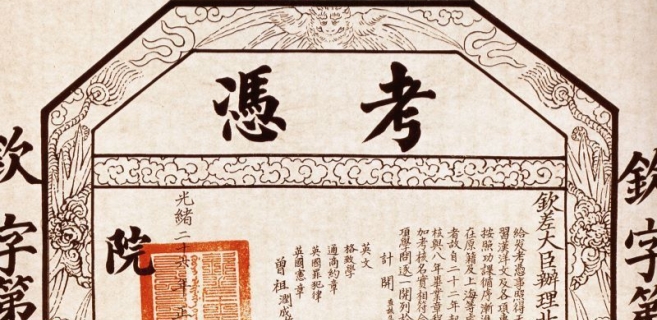 考憑
欽字第
欽差大臣辦理北
給發考憑事照得
習漢洋文及各項
按照功課循序漸
在原籍及上海等
者故自二十二年
核與八年畢業章
加考核名實相符
項學問逐一開列
計開
英文
格致學
通商約章
英國罪犯律
英國憲章
曾祖潤成
光緒二十六年
院
欽字第